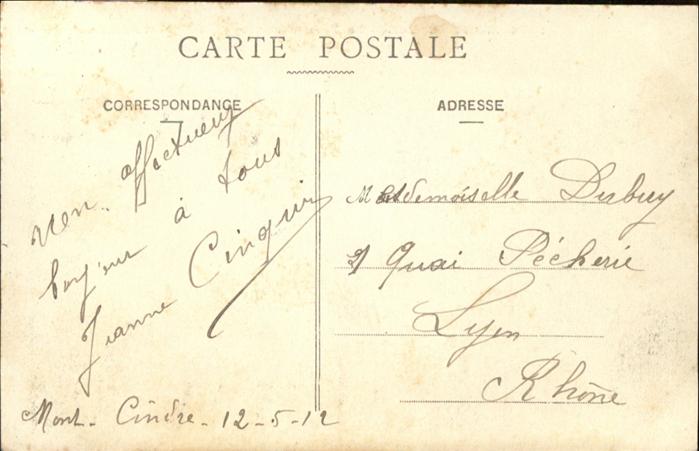 CARTE POSTALE
CORRESPONDANCE
Mon affectueux
bonjour à tous
Jeanne Cinquin
Mont-Cindre-12-5-12
ADRESSE
Mademoiselle Dubuy
21 Quai Pécherie
Lyon
Rhône